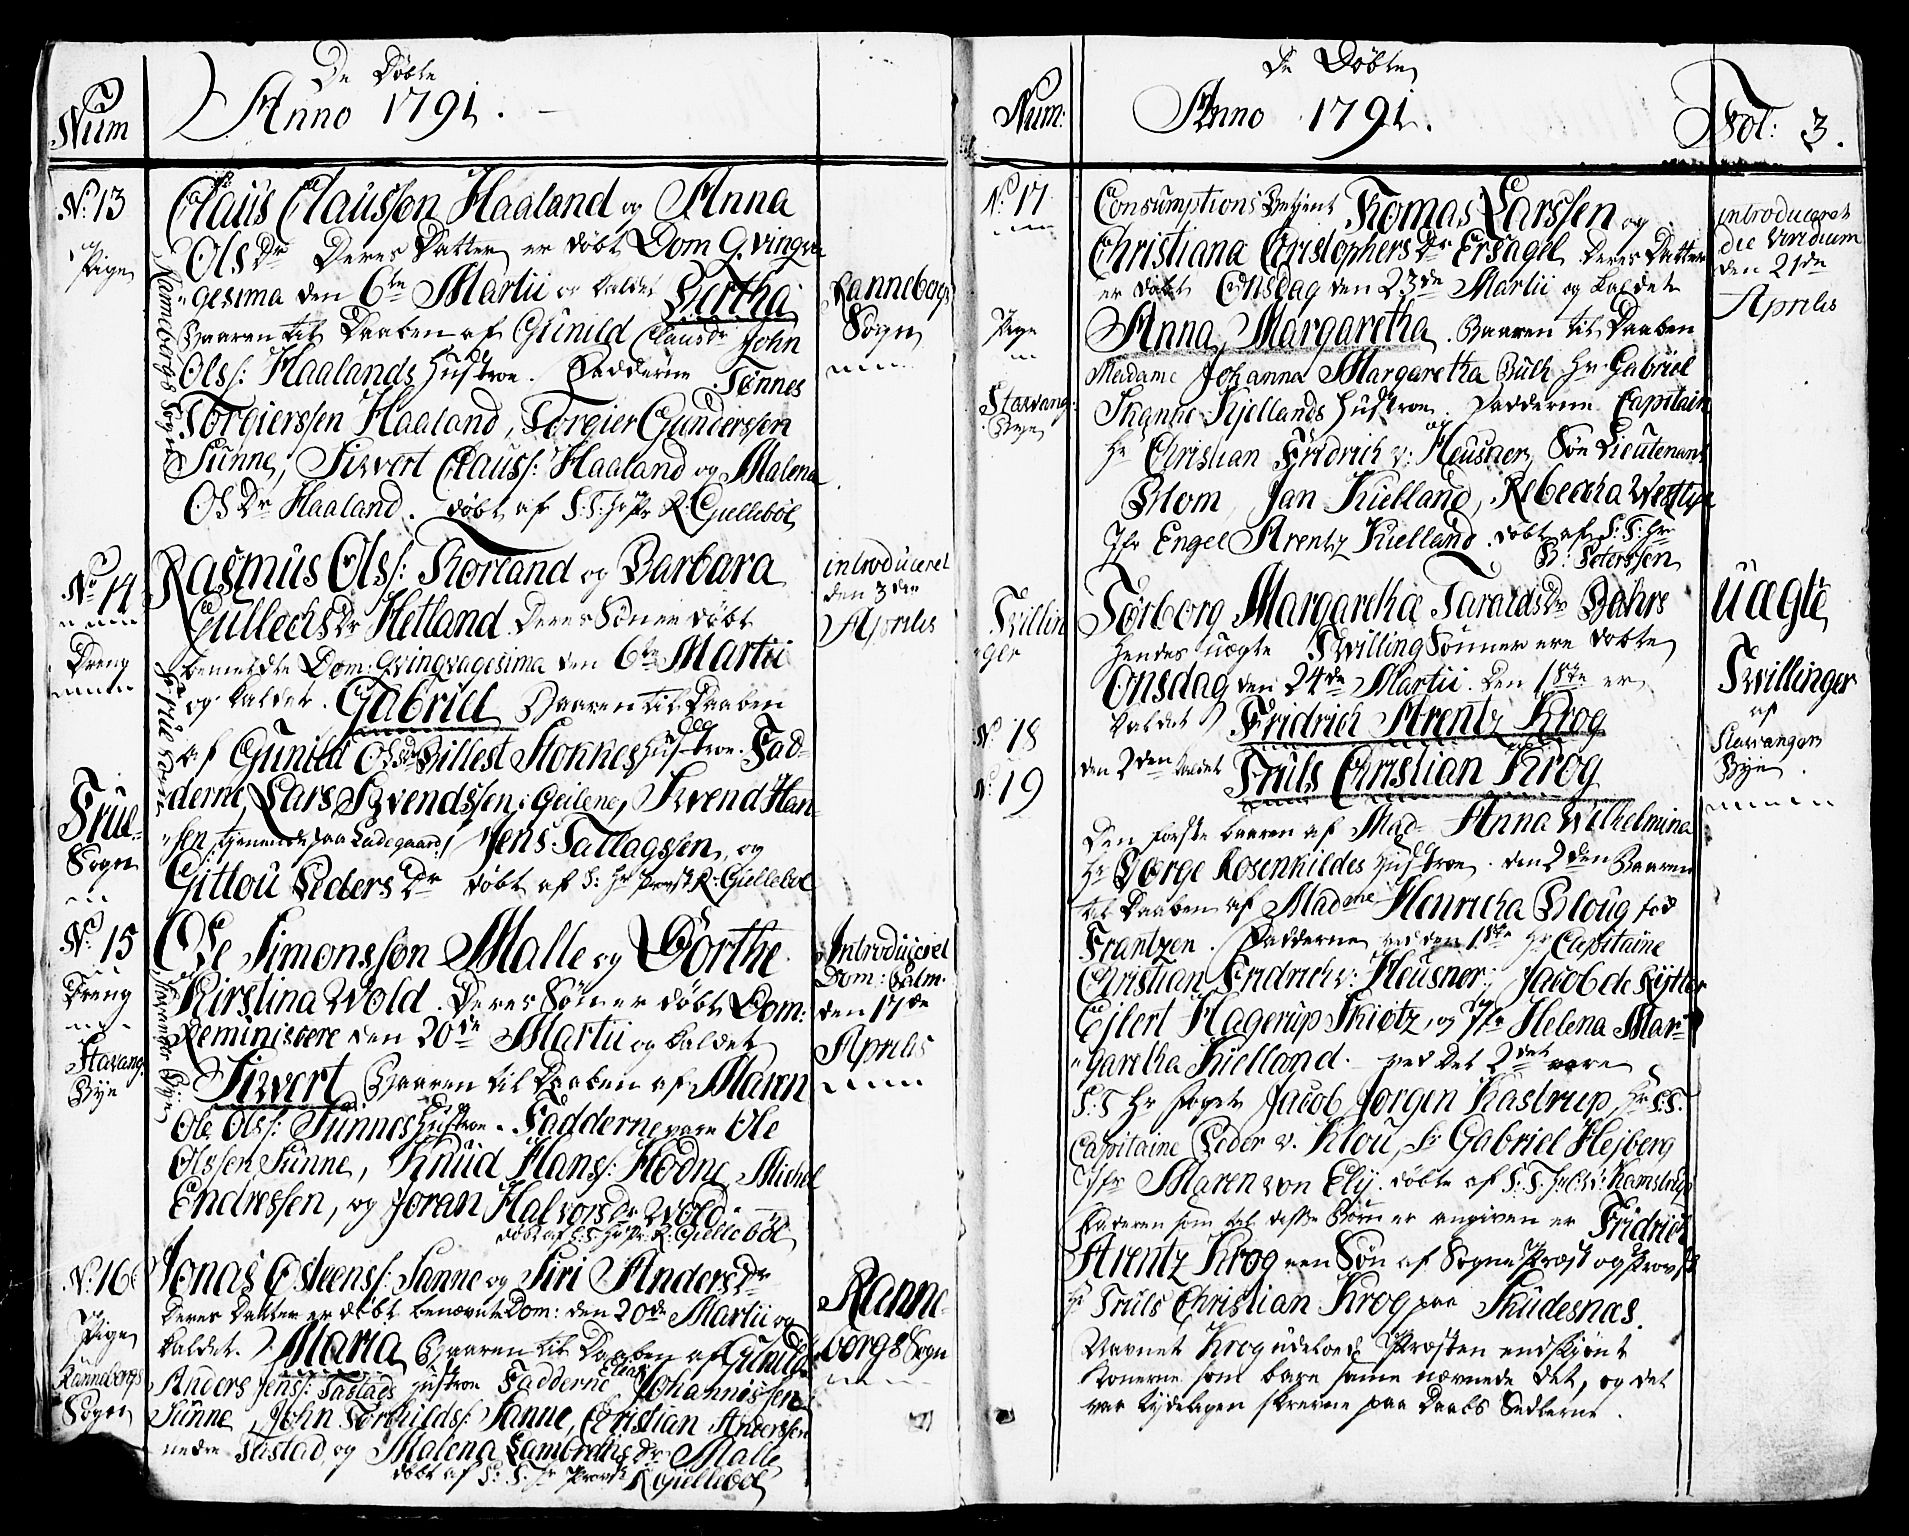 De Døbte
Num
Anno 1791.
No: 13
Pige
Ranneberg Sogn
Claus Claussøn Haaland og Anna
Ols Dr Deres Datter er døbt Dom Qvinqva
gesima den 6te Martii og kaldet Bertha
Baaren til Daaben af Gunild Clausdr John
Ols: Haalands Hustroe. Fadderne Tønnes
Torgierssen Haaland, Torgier Gunderssen
Sunne, Sivert Clauss: Haaland og Malena
Ols Dr Haaland. døbt af S: T: Hr Pr R: Gjellebøl
Ranneberg
Sogn
No 14
Dreng
Frue
Sogn
Rasmus Ols: Norland og Barbara
Gullechs Dr Hetland. Deres Søn er døbt
bemeldte Dom: Qvinqvagesima den 6te Martii
og kaldet. Gabriel Baaren til Daaben
af Gunild Ols dr Billest Honnes Hustroe. Fad-
derne, Lars Svendssen, Geilene, Svend Han-
sen, tjenende paa Ladegaard, Jens Tallagssen, og
Gittou Peders Dr døbt af S: Hr Provst R: Gjellebøl
introduceret
den 3den
Aprilis
No: 15
Dreng
Stavang:
Bye
Stavanger Bye
Ole Simonssøn Malle og Dorthe
Kirstina Wold. Deres Søn er døbt Dom:
Reminiscere den 20de Martii og kaldet
Sivert Baaren til Daaben af Maren
Ole Ols: Sunnes Hustroe. Fadderne vare Ole
Olssen Sunne, Knud Hans: Hodne, Michel
Endressen, og Joran Halvors Dr Wold
døbt af S: T: Hr Pr: R: Gjellebøl
Introduceret
Dom: Palm.
den 17de
Aprilis
No: 16
Pige
Rannebergs
Sogn
Jonas Osteens: Sanne og Siri Anders Dr
Deres Datter er døbt benævnte Dom: den 20de Martii og
kaldet. Maria Baaren til Daaben af Gunild
Anders Jens: Tastads Hustroe Fadderne Elias Johannissen
Sunne, John Torkilds: Sanne, Christian Anderssen
nedre Tastad, og Malena Lambrethis Dr Malle
døbt af S: T: Hr Provst R Gjellebøl
Ranne-
borgs Sogn
De Døbte
Num:
Anno 1791.
Fol: 3.
No: 17
Pige
Stavang:
Bye
Consumptions Betjent Thomas Larssen og
Christiana Christophers Dr Ersagel Deres Datter
er døbt Onsdag den 23de Martii og kaldet
Anna Margaretha. Baaren til Daaben
Madame Johanna Margaretha Bull Hr Gabriel
Schanche Kjellands Hustroe. Fadderne Capitain
Hr Christian Fridrich v: Heusner, Søn Lieutenant
Blom, Jan Kielland, Rebecka
Jfr Engel Arentz Kielland. døbt af S: T: Hr
B: Peterssen
introduceret
die viridium
den 21de
Aprilis
Tvillin
ger
No: 18
No: 19
Torborg Margaretha Taralds Dr Bahrs
hendes uægte Tvilling Sønner ere døbte
Onsdag den 24de Martii. Den 1ste er
kaldet Fridrich Arentz Krog
den 2den kaldet Truls Christian Krog
Den første baaren af Mad. Anna Wilhelmina
Hr Børge Rosenkildes Hustroe. den 2den Baaren
til Daaben af Madme Henricka Ploug fød
Frantzen. Fadderne ved den 1ste Hr Capitaine
Christian Fridrich v: Heusner, Jacob de Rytter
Ejlert Hagerup Skiøtz, og Jfr Helena Mar-
garetha Kielland. ved det 2det vare
S: T Hr Foget Jacob Jørgen Kastrup, Hr S: T:
Capitaine Peder v. Klou, Sr Gabriel Hejberg
Jfr Maren von Ely. døbte af S: T: Hr C: v: Kamstrup
Faderen som til disse Børn er angiven er Fridrich
Arentz Krog een Søn af Sogne Præst og Provst
Hr Truls Christian Krog paa Skudesnæs.
Navnet Krog udeloed Præsten endskjønt
Konerne som bare samme nævnede det, og det
var tydeligen skrevne paa Daabs Sedlerne.
uægte
Tvillinger
af
Stavangers
Bye